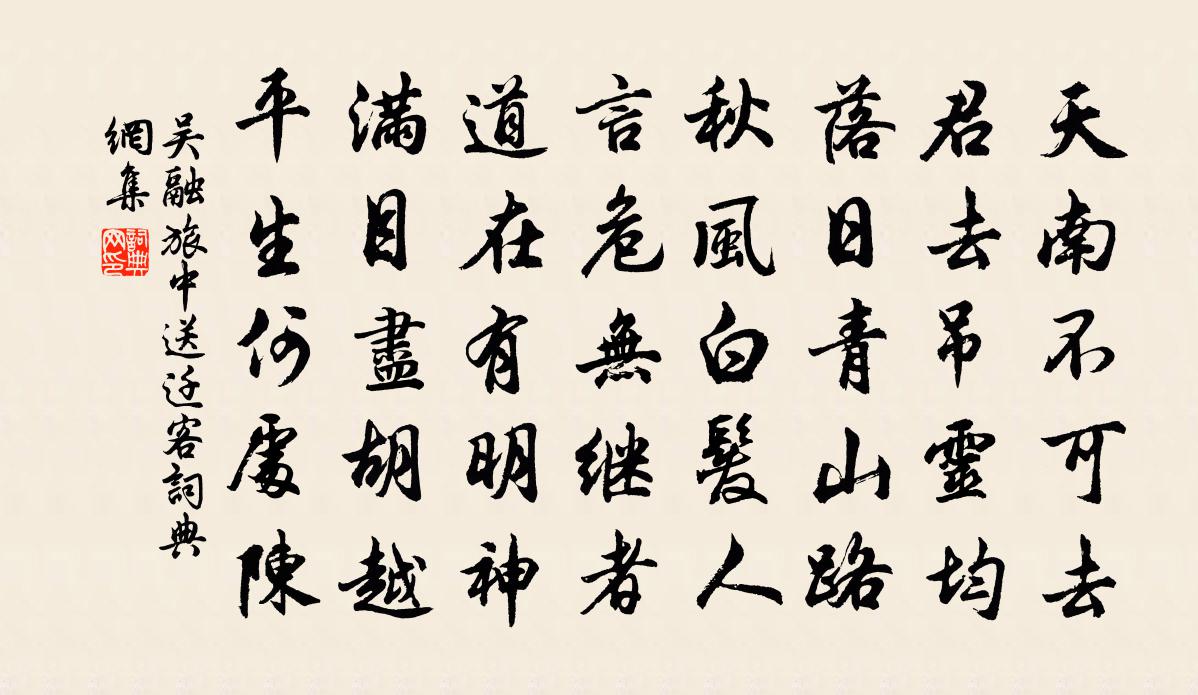 天南不可去
君去吊靈均
落日青山路
秋風白髮人
言危無继者
道在有明神
滿目盡胡越
平生何處陳
吴融旅中送迁客詞典
網集
詞典
网印